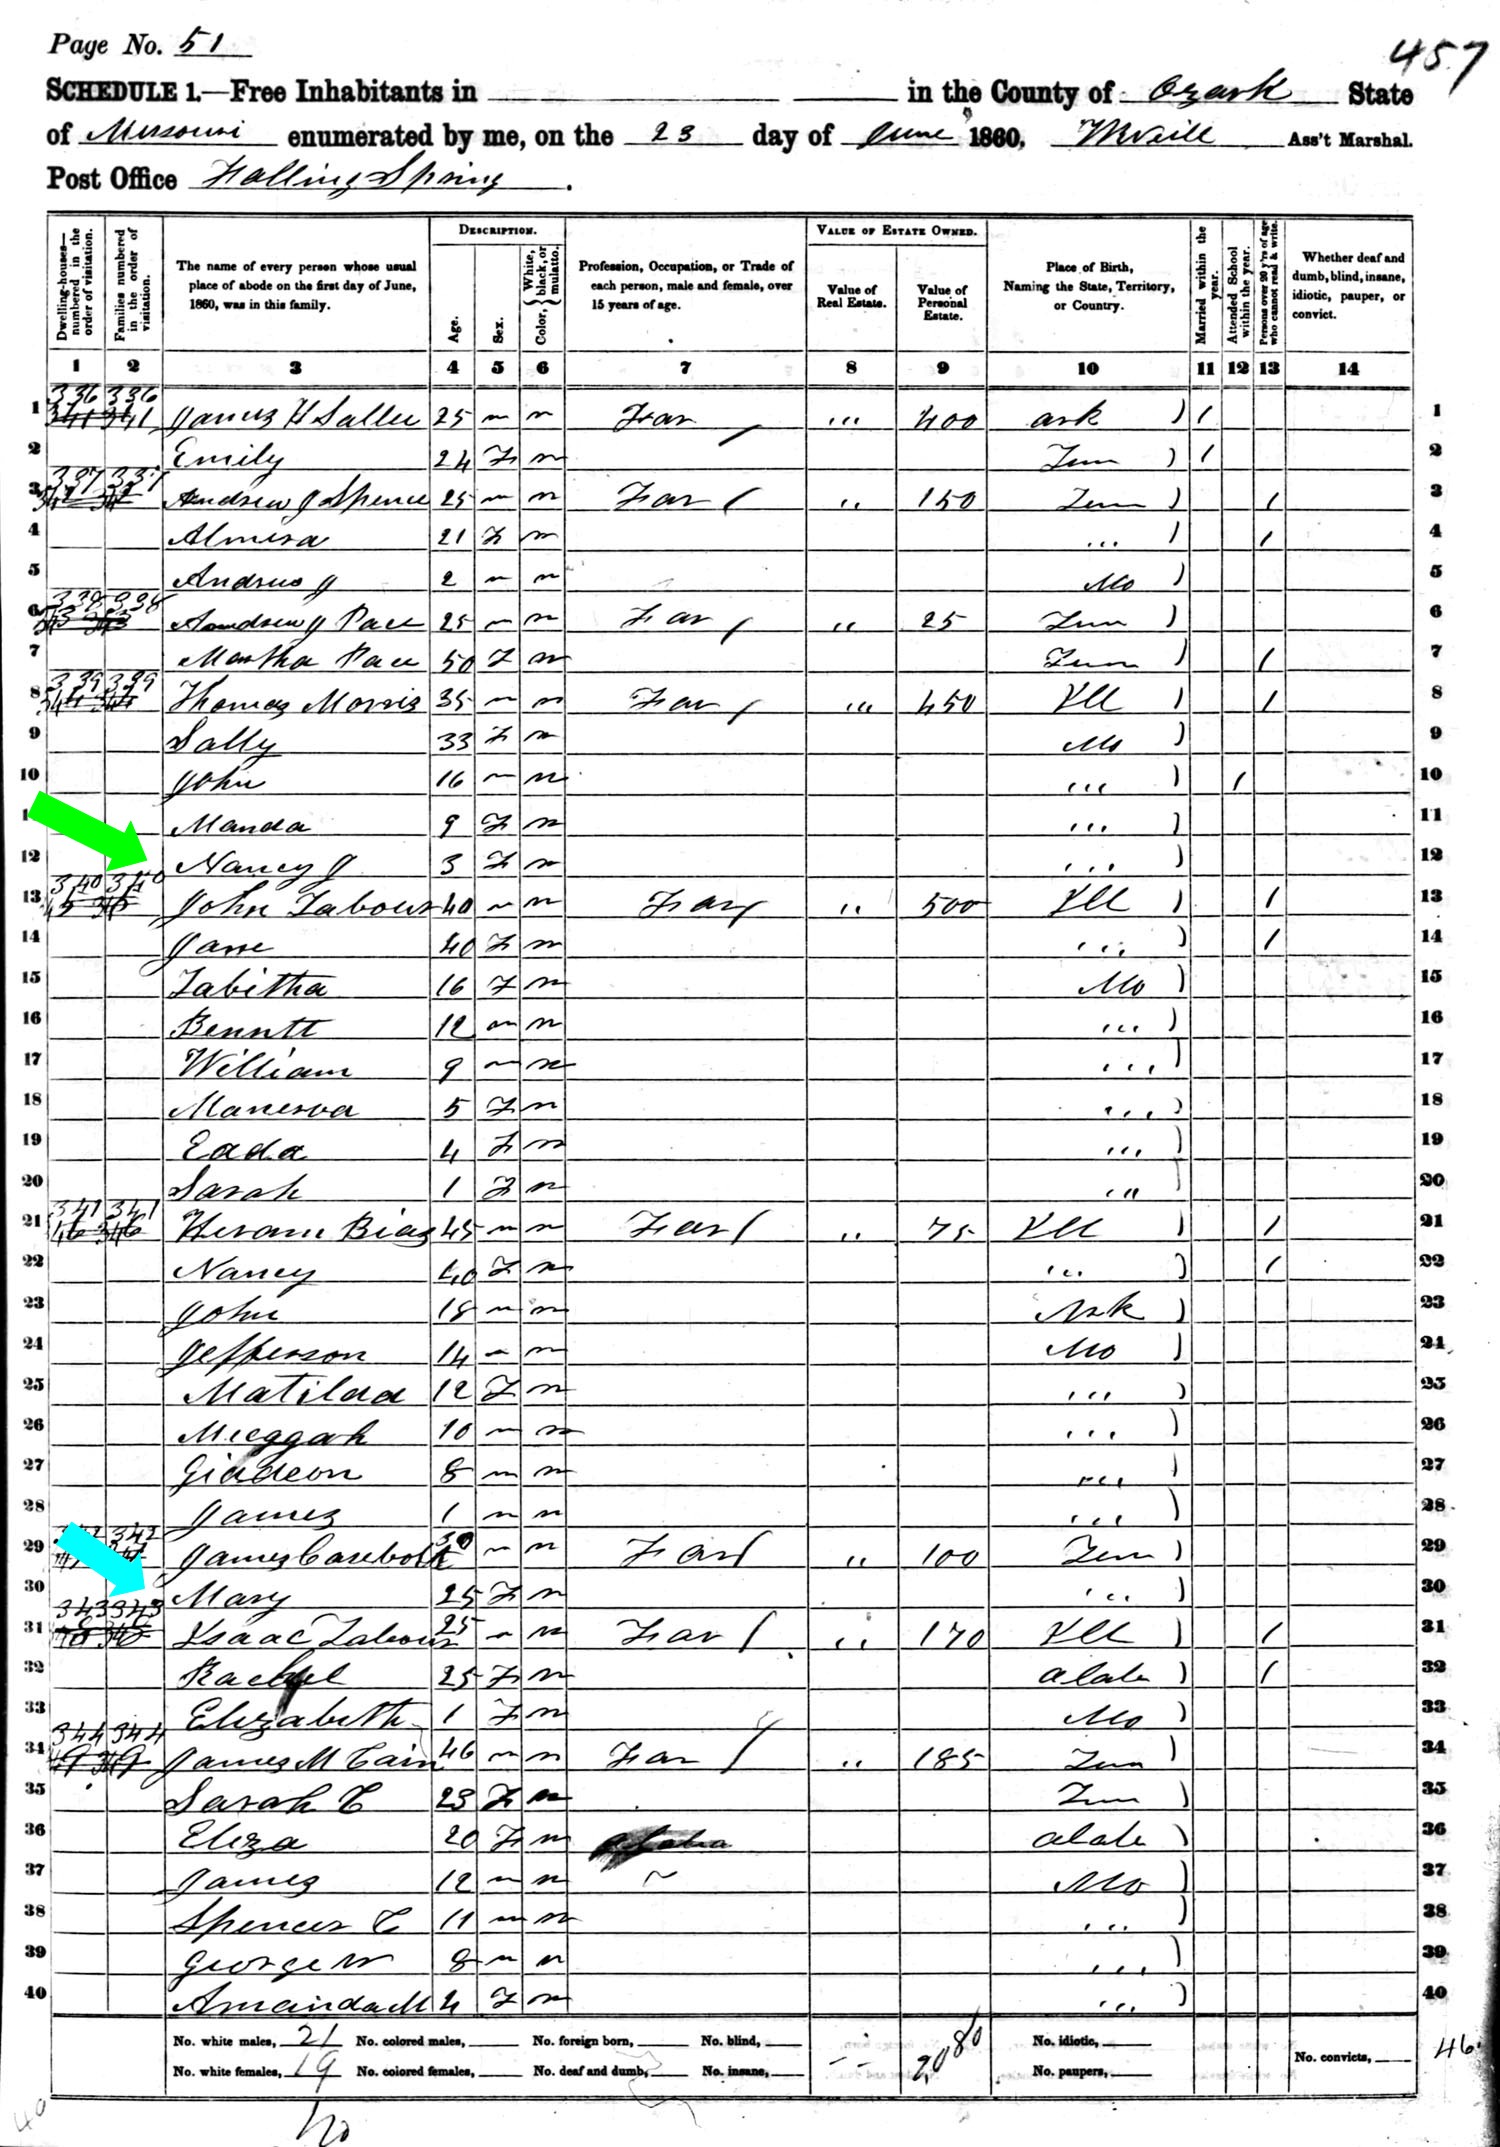 Page No. 51
457
SCHEDULE 1.—Free Inhabitants in in the County of Ozark State
of Missouri enumerated by me, on the 23 day of June 1860, Ass't Marshal.
Post Office Falling Spring.
DESCRIPTION. VALUE OF ESTATE OWNED.
Dwelling-houses—numbered in the order of visitation. Families numbered in the order of visitation. The name of every person whose usual place of abode on the first day of June, 1860, was in this family. Age. Sex. Color, {White, black, or mulatto. Profession, Occupation, or Trade of each person, male and female, over 15 years of age. Value of Real Estate. Value of Personal Estate. Place of Birth, Naming the State, Territory, or Country. Married within the year. Attended School within the year. Persons over 20 y'rs of age who cannot read & write. Whether deaf and dumb, blind, insane, idiotic, pauper, or convict.
1 2 3 4 5 6 7 8 9 10 11 12 13 14
336 336
1 341 341 James H Sallee 25 m Far ,,, 400 ark / 1
2 Emily 24 F Tenn / 2
337 337
3 Andrew J Spence 25 m Far ,, 150 Tenn / 3
4 Almira 21 F ,,, / 4
5 Andrew J 2 m Mo 5
338 338
6 Andrew J Pace 25 m Far ,, 25 Tenn 6
7 Martha Pace 50 F Tenn / 7
339 339
8 Thomas Morris 35 m Far ,,, 450 Ill / 8
9 Sally 33 F Mo 9
10 John 16 m ,,, / 10
1 Manda 9 F ,,, 11
12 Nancy J 3 F ,,, 12
340 340
13 John Tabour 40 m Far ,, 500 Ill / 13
14 Jane 40 F ,,, / 14
15 Tabitha 16 F Mo 15
16 Bennett 12 m ,,, 16
17 William 9 m ,,, 17
18 Manerva 5 F ,,, 18
19 Eada 4 F ,,, 19
20 Sarah 1 F ,,, 20
341 341
21 346 Heram Bias 45 m Far ,, 75 Ill / 21
22 Nancy 40 F ,,, / 22
23 John 18 m Ark 23
24 Jefferson 14 m Mo 24
25 Matilda 12 F ,,, 25
26 10 m ,,, 26
27 Giadeon 8 m ,,, 27
28 James 1 m ,,, 28
342
29 James 30 m Far ,, 100 Tenn 29
30 Mary 25 F ,,, 30
343 343
31 Isaac Tabour 25 m Far ,, 170 Ill / 31
32 Rachel 25 F alab / 32
33 Elizabeth 1 F Mo 33
344 344
34 49 349 James M Cain 46 m Far ,, 185 Tenn 34
35 Sarah C 23 F Tenn 35
36 Eliza 20 F alab 36
37 James 12 m Mo 37
38 Spencer C 11 m ,,, 38
39 George W 8 m ,,, 39
40 Amanda M 4 F ,,, 40
No. white males, 21 No. colored males, No. foreign born, No. blind, No. idiotic,
No. white females, 19 No. colored females, No. deaf and dumb, No. insane, 2080 No. paupers, No. convicts, 46
40